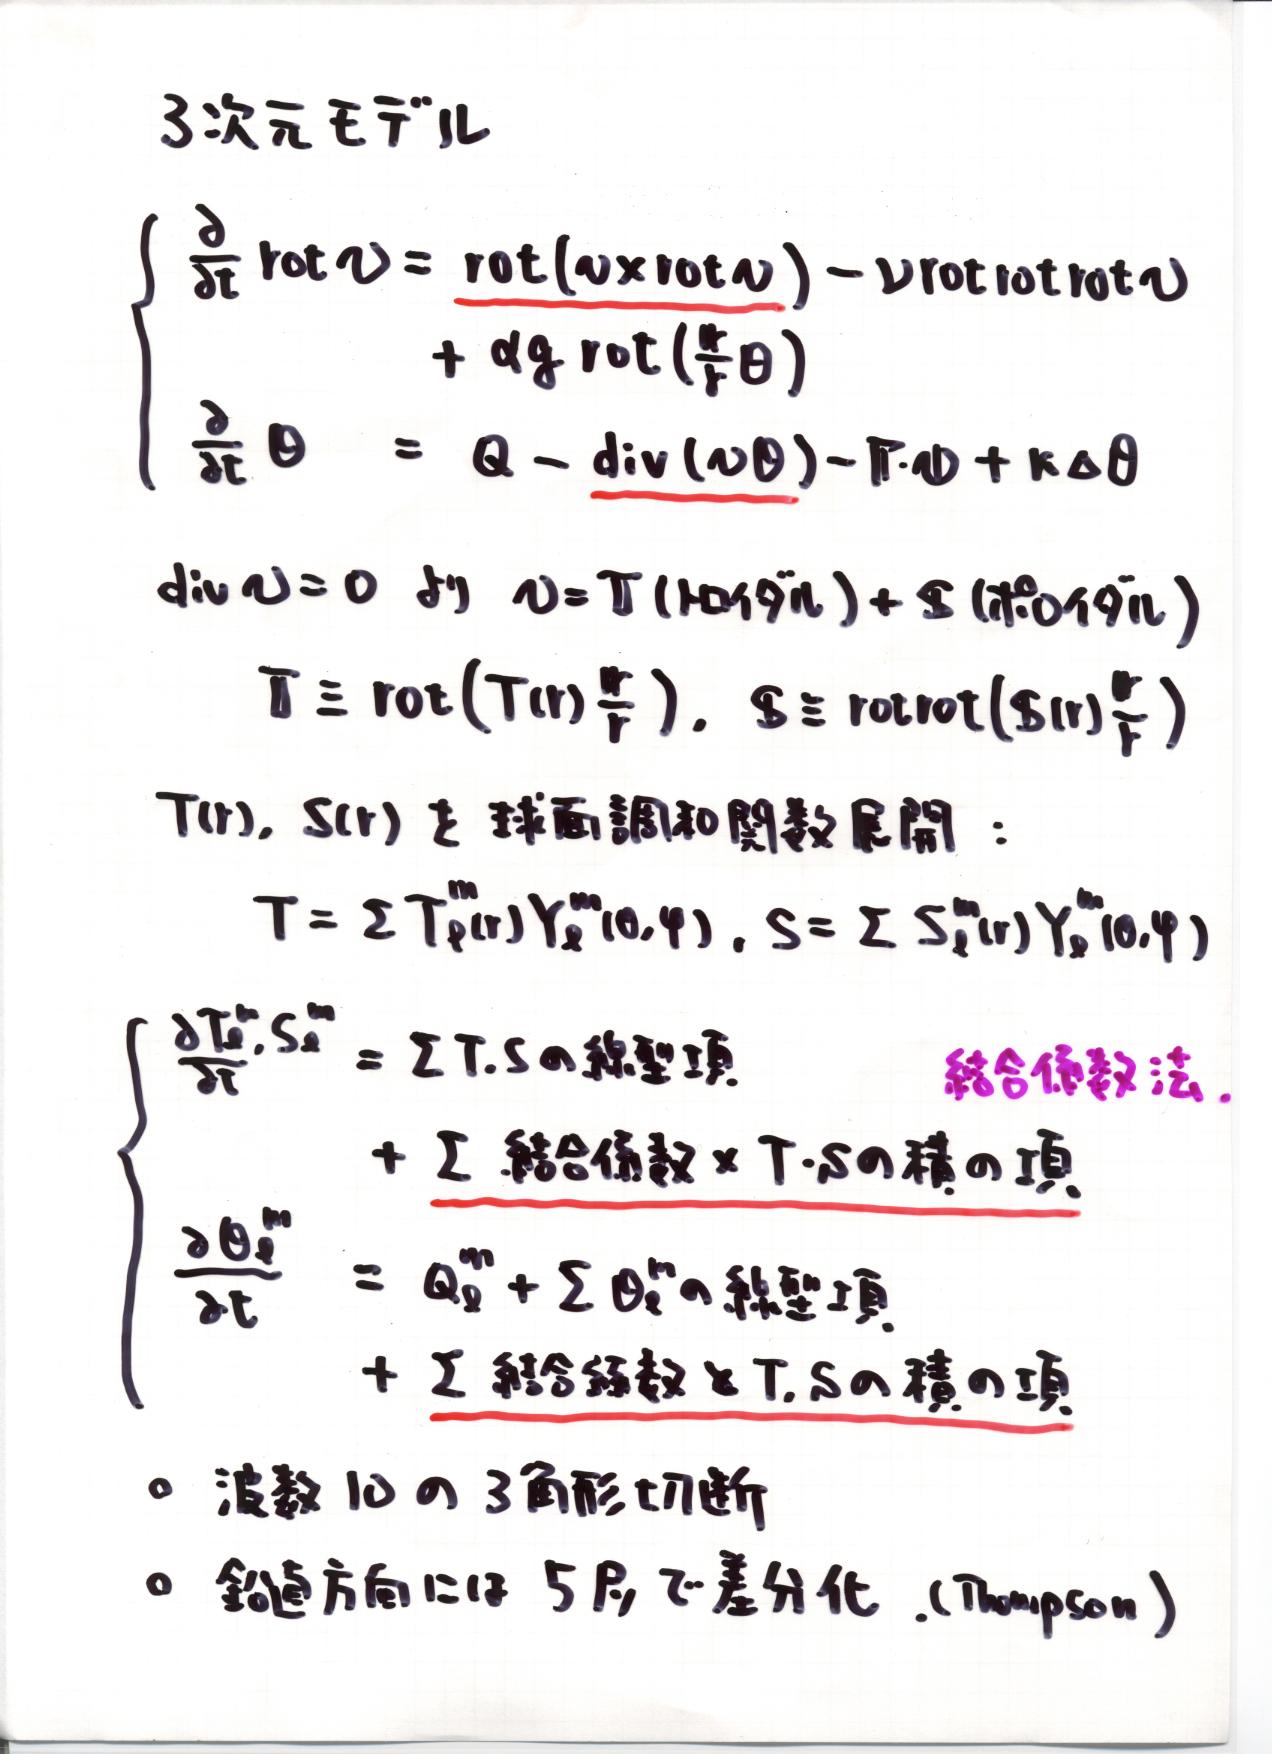 3次元モデル
∂/∂t rot v = rot(v×rot v) − ν rot rot rot v
+ αg rot(r/r θ)
∂/∂t θ = Q − div(vθ) − Γ·v + κΔθ
div v = 0 より v = T(トロイダル) + S(ポロイダル)
T ≡ rot(T(r) r/r), S ≡ rot rot(S(r) r/r)
T(r), S(r) を 球面調和関数展開:
T = Σ T_ℓ^m(r) Y_ℓ^m(θ,φ), S = Σ S_ℓ^m(r) Y_ℓ^m(θ,φ)
∂T_ℓ^m, S_ℓ^m/∂t = Σ T,Sの線型項
結合係数法.
+ Σ 結合係数 × T·Sの積の項
∂θ_ℓ^m/∂t = Q_ℓ^m + Σ θ_ℓ^mの線型項
+ Σ 結合係数 × T,Sの積の項
○ 波数10の3角形切断
○ 鉛直方向には 5層で差分化.(Thompson)